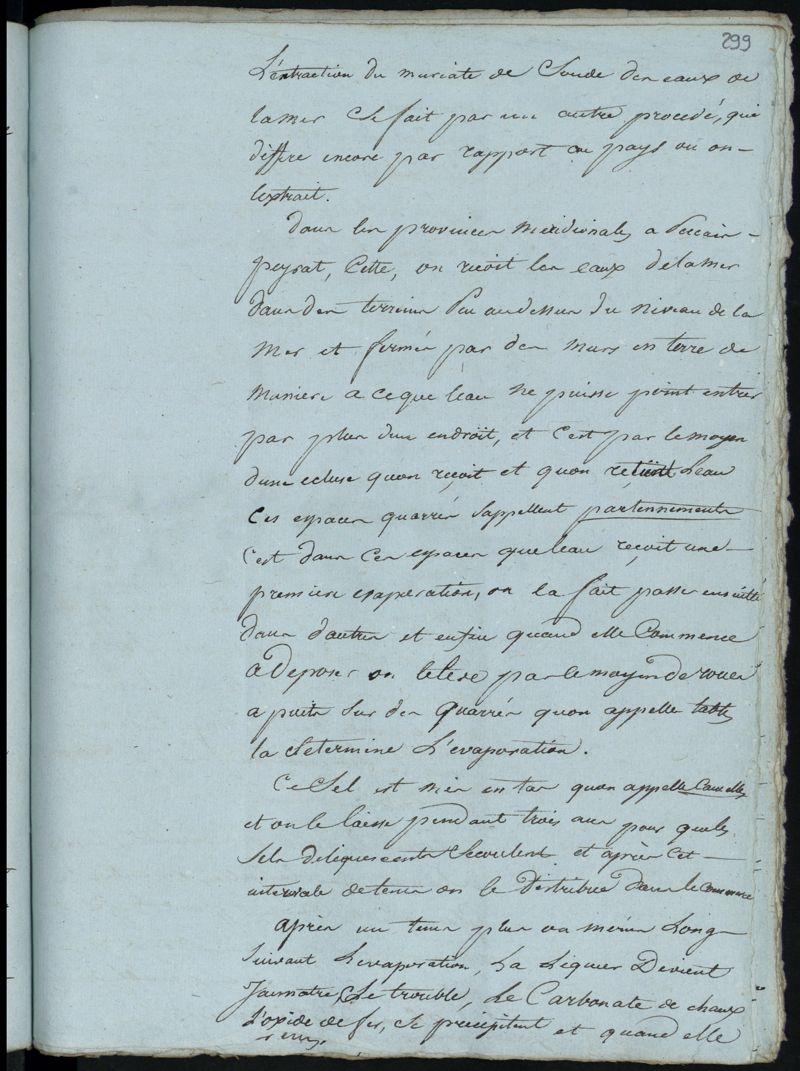 299
L'extraction du muriate de Soude des eaux de
la mer se fait par un autre procedé, qui
differe encore par rapport au pays ou on
l'extrait.
Dans les provinces meridionales a Peccais
peyrat, Cette, on reçoit les eaux de la mer
dans des terreins peu au dessus du niveau de la
mer et fermés par des murs en terre de
maniere a ce que leau ne puisse point entrer
par plus dun endroit, et c'est par le moyen
dune ecluse quon reçoit et quon retient Leau
Ces espaces quarrés sappellent partennements
C'est dans ces espaces que leau reçoit une
premiere evaporation, on la fait passer ensuitte
dans d'autres et enfin quand elle Commence
a Deposer on leleve par le moyen de roues
a puits sur des quarrés quon appelle tables
la se termine L'evaporation.
Ce Sel est mis en tas quon appelle Camelles
et on le laisse pendant trois ans pour que les
Sels deliquescents secoulent et après cet
intervale de tems on le distribue dans le commerce
après un tems plus ou moins Long
suivant Levaporation, La Liqueur Devient
Jaunatre, Se trouble, Le Carbonate de chaux
L'oxide de fer, se precipitent et quand elle